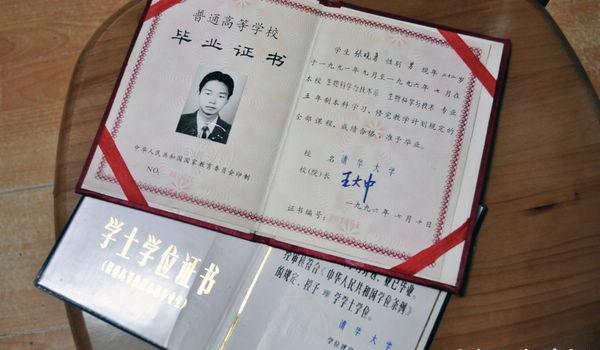 普通高等学校
毕业证书
中华人民共和国国家教育委员会印制
NO.
学生 张晓勇 性别 男 现年 二十二 岁
于一九九一年九月至一九九六年七月在
本校 生物科学与技术系 生物科学与技术 专业
五年制本科学习，修完教学计划规定的
全部课程，成绩合格，准予毕业。
校 名 清华大学
校(院)长 王大中
一九九六年七月十日
证书编号:
学士学位证书
经审核符合《中华人民共和国学位条例》
的规定，授予 理 学学士学位。
清华大学